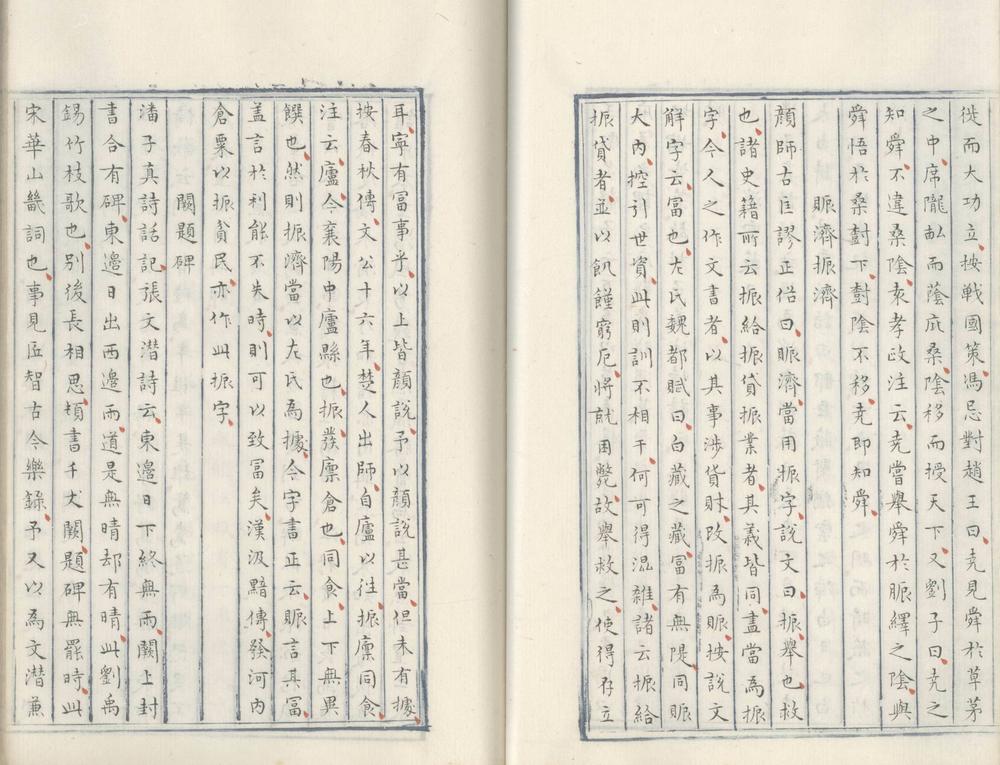 徙而大功立按戰國策馮忌對趙王曰堯見舜於草茅
之中席隴畝而蔭庇桑陰移而授天下又劉子曰堯之
知舜不違桑陰袁孝政注云堯嘗舉舜於服繹之陰與
舜語於桑對下對陰不移堯即知舜
賑濟振濟
顏師古匡謬正俗曰賑濟當用振字說文曰振舉也救
也諸史籍所云振給振貸振業者其義皆同盡當為振
字今人之作文書者以其事涉貸財改振為賑按說文
解字云富也左氏魏都賦曰白藏之藏富有無隄同賑
大內控引世資此則訓不相干何可得混雜諸云振給
振貸者並以飢饉窮厄將就困斃故舉救之使得存立
耳寧有富事乎以上皆顏說予以顏說甚當但未有據
按春秋傳文公十六年楚人出師自廬以往振廩同食
注云廬今襄陽中廬縣也振發廩倉也同食上下無異
饌也然則振濟當以左氏為據今字書正云賑言其富
蓋言於利能不失時則可以致富矣漢汲黯傳發河內
倉粟以振貧民亦作此振字
闕題碑
潘子真詩話記張文潛詩云東邊日下終無雨闕上封
書合有碑東邊日出西邊雨道是無晴却有晴此劉禹
錫竹枝歌也別後長相思頓書千丈闕題碑無罷時此
宋華山畿詞也事見匠智古今樂錄予又以為文潛兼